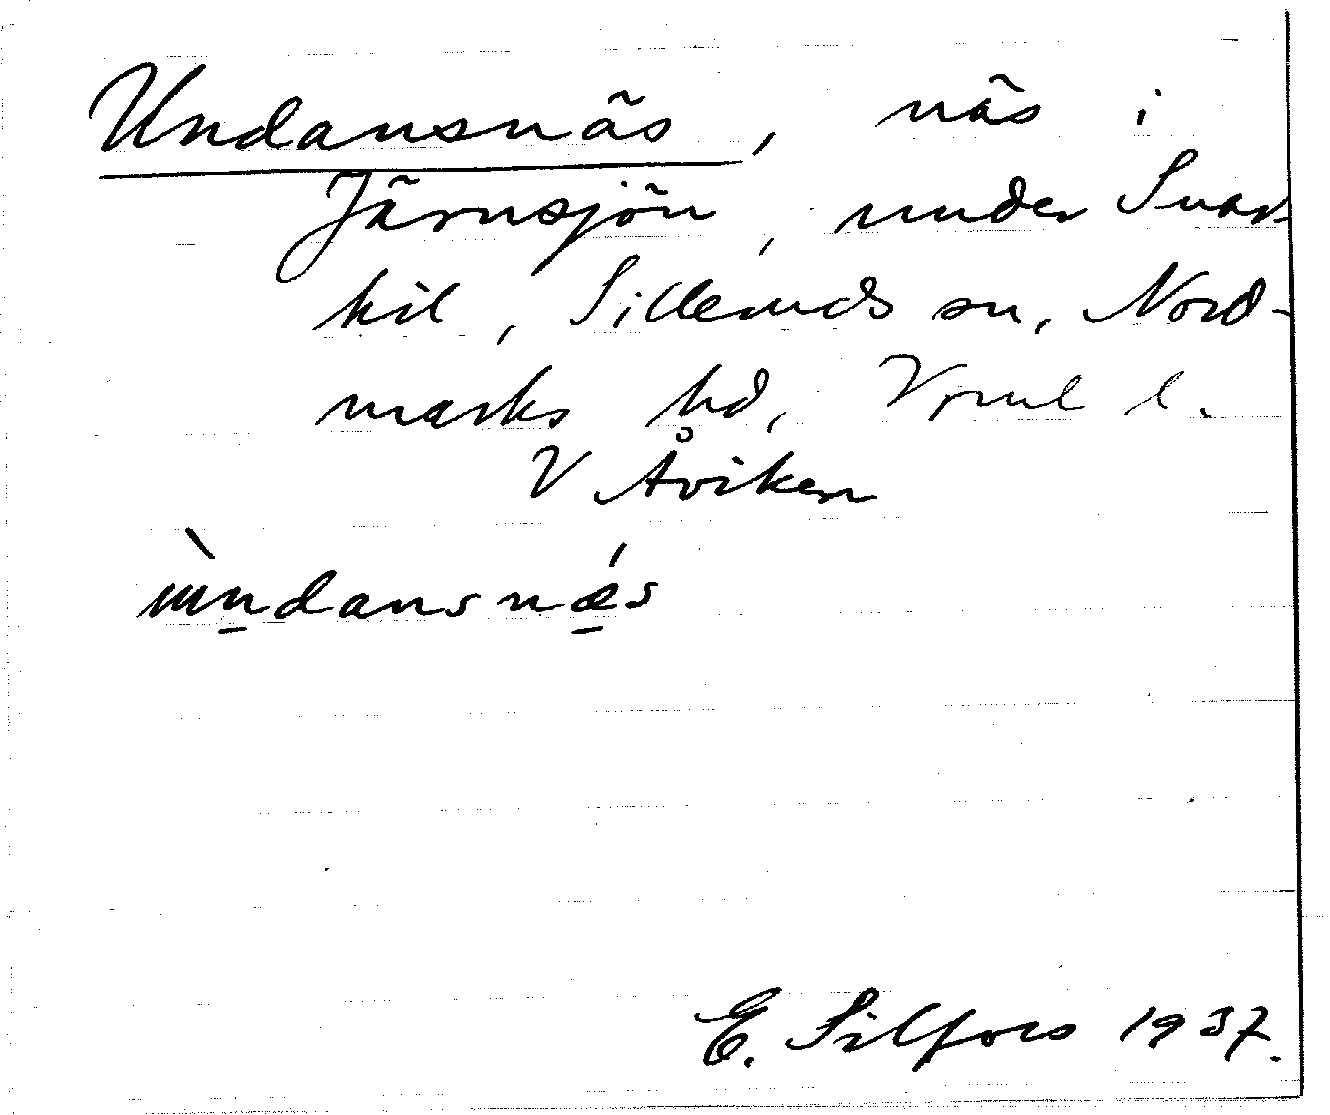 Undansnäs, näs i
Järnsjön, under Svar-
kil, Sillemds sn, Nord-
marks hd, Vrml l.
V Åviken
E. Silfors 1937.